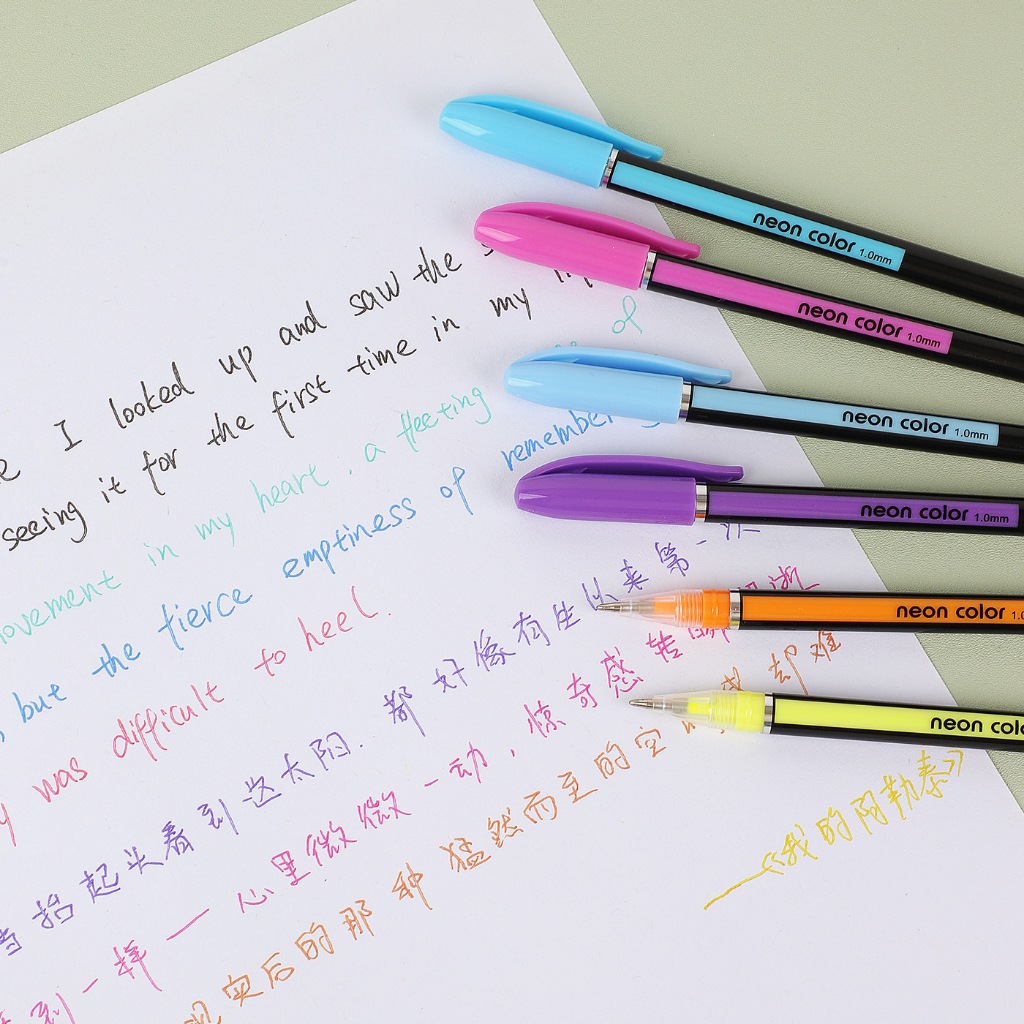 I looked up and saw the
seeing it for the first time in my
in my heart, a fleeting of
, but the fierce emptiness of remember
was difficult to heel.
抬起头看到这太阳.都好像有生以来第一次
看到一样——心里微微一动,惊奇感转瞬即逝
现实后的那种猛然而至的空 却难
——《我的阿勒泰》
neon color 1.0mm
neon color 1.0mm
neon color 1.0mm
neon color 1.0mm
neon color
neon